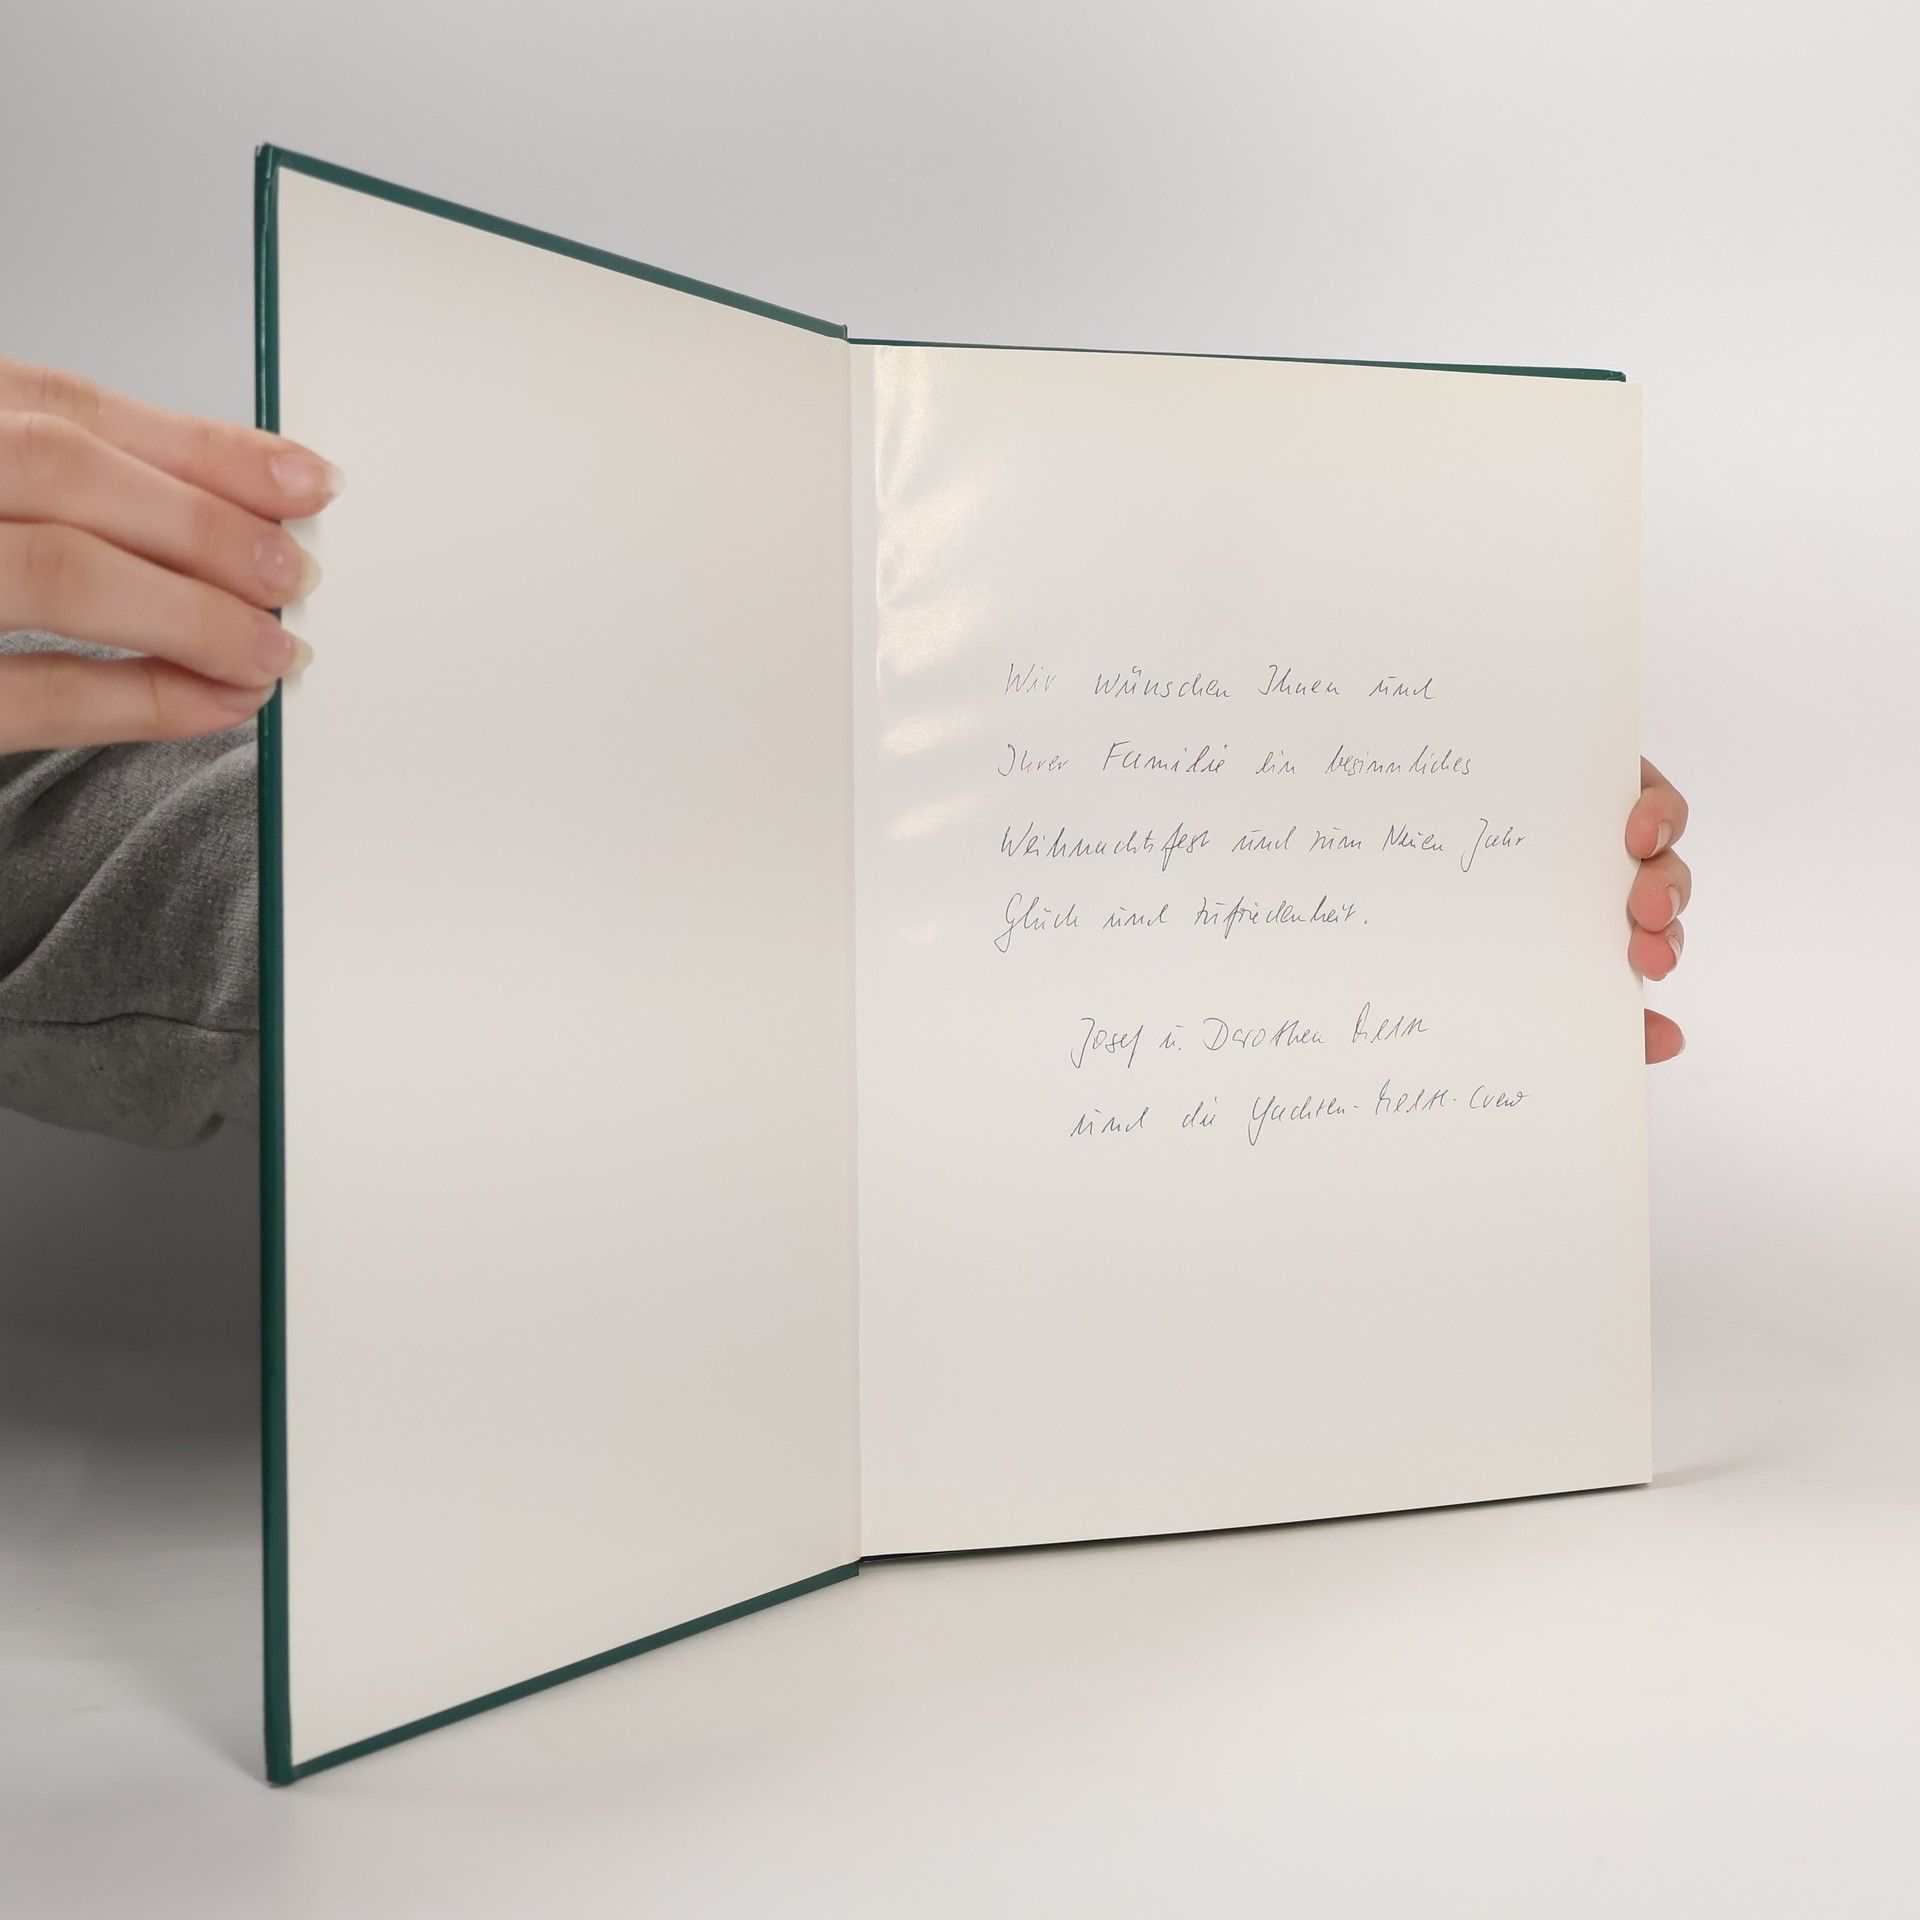 Wir wünschen Ihnen und
Ihrer Familie ein besinnliches
Weihnachtsfest und zum Neuen Jahr
Glück und Zufriedenheit.
Josef u. Dorothea
und die Yachten- -Crew